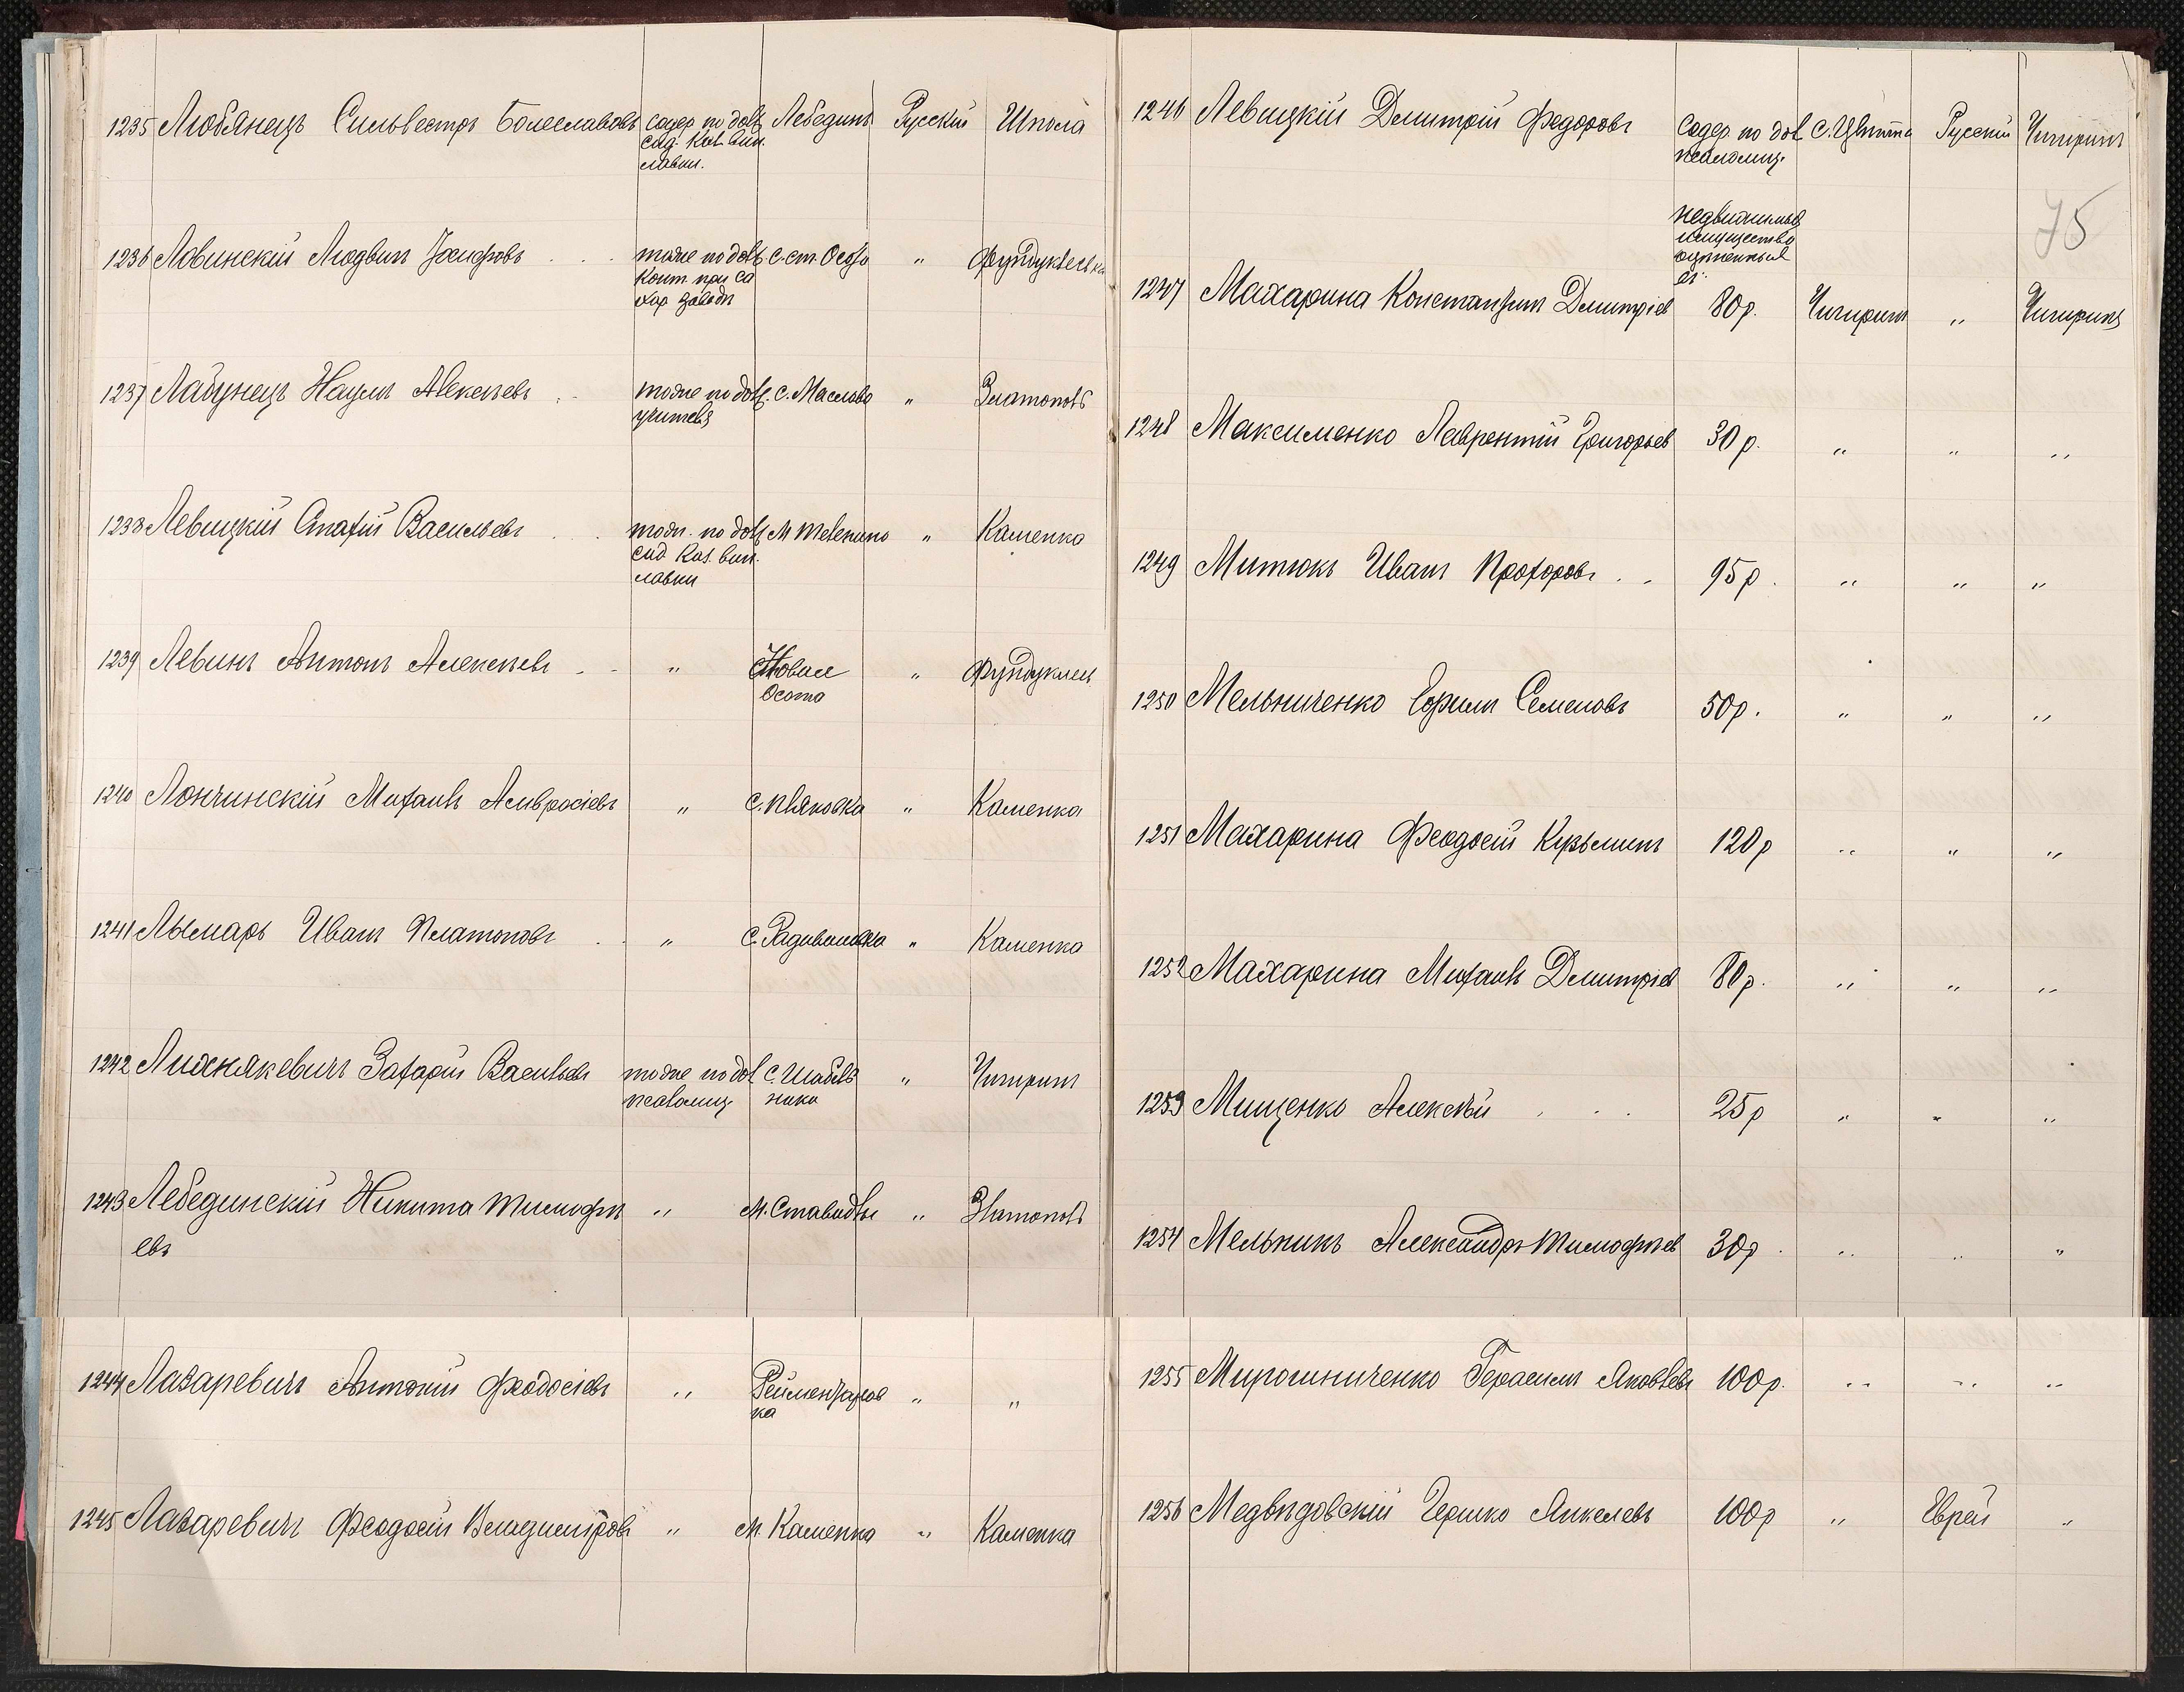 1235 Любянецъ Сильвестръ Болеславовъ содер. по долж. Лебединъ Русскій Шпола
сид. каз. вин.
лавки.
1236 Ловинскій Людвигъ Іосифовъ тоже по долж. с. ст. Осота " Фундуклеевка
конт. при са
хар заводѣ
1237 Лабунецъ Наумъ Алексѣевъ тоже по долж. с. Маслова " Златополь
учителя
1238 Левицкій Статій Васильевъ тоже по долж. М Телепино " Каменка
сид каз. вин.
лавки
1239 Левинъ Антонъ Алексѣевъ " Новая " Фундуклеев
Осота
1240 Лончинскій Михаилъ Амвросіевъ " с. Пляковка " Каменка
1241 Лымарь Иванъ Платоновъ " с. Радивановка " Каменка
1242 Лихнякевичъ Захарій Васильевъ тоже по дол с. Шабель " Чигиринъ
псаломщ ники
1243 Лебединскій Никита Тимофѣ " м. Ставидлы " Златополь
евъ
1244 Лазаревичъ Антоній Феодосіевъ " Рейментаров " "
ка
1245 Лазаревичъ Феодосій Владимировъ " м. Каменка " Каменка
1246 Левицкій Дмитрій Федоровъ Содер. по дол с. Цвитна Русскій Чигиринъ
псаломщ.
75
недвижимое
имущество
оцененное
въ
1247 Махарина Константинъ Дмитріев 80р. Чигиринъ " Чигиринъ
1248 Максименко Лаврентій Григорьев 30р. " " "
1249 Митюкъ Иванъ Прохоровъ 95р. " " "
1250 Мельниченко Ефимъ Семеновъ 50р. " " "
1251 Махарина Феодосій Кузьминъ 120р " " "
1252 Махарина Михаилъ Дмитріев 80р. " " "
1253 Мищенко Алексѣй 25р " " "
1254 Мельникъ Александръ Тимофѣев 30р " " "
1255 Мирошниченко Герасимъ Яковлевъ 100р. " " "
1256 Медвѣдовскій Гершко Янкелевъ 100р " Еврей "